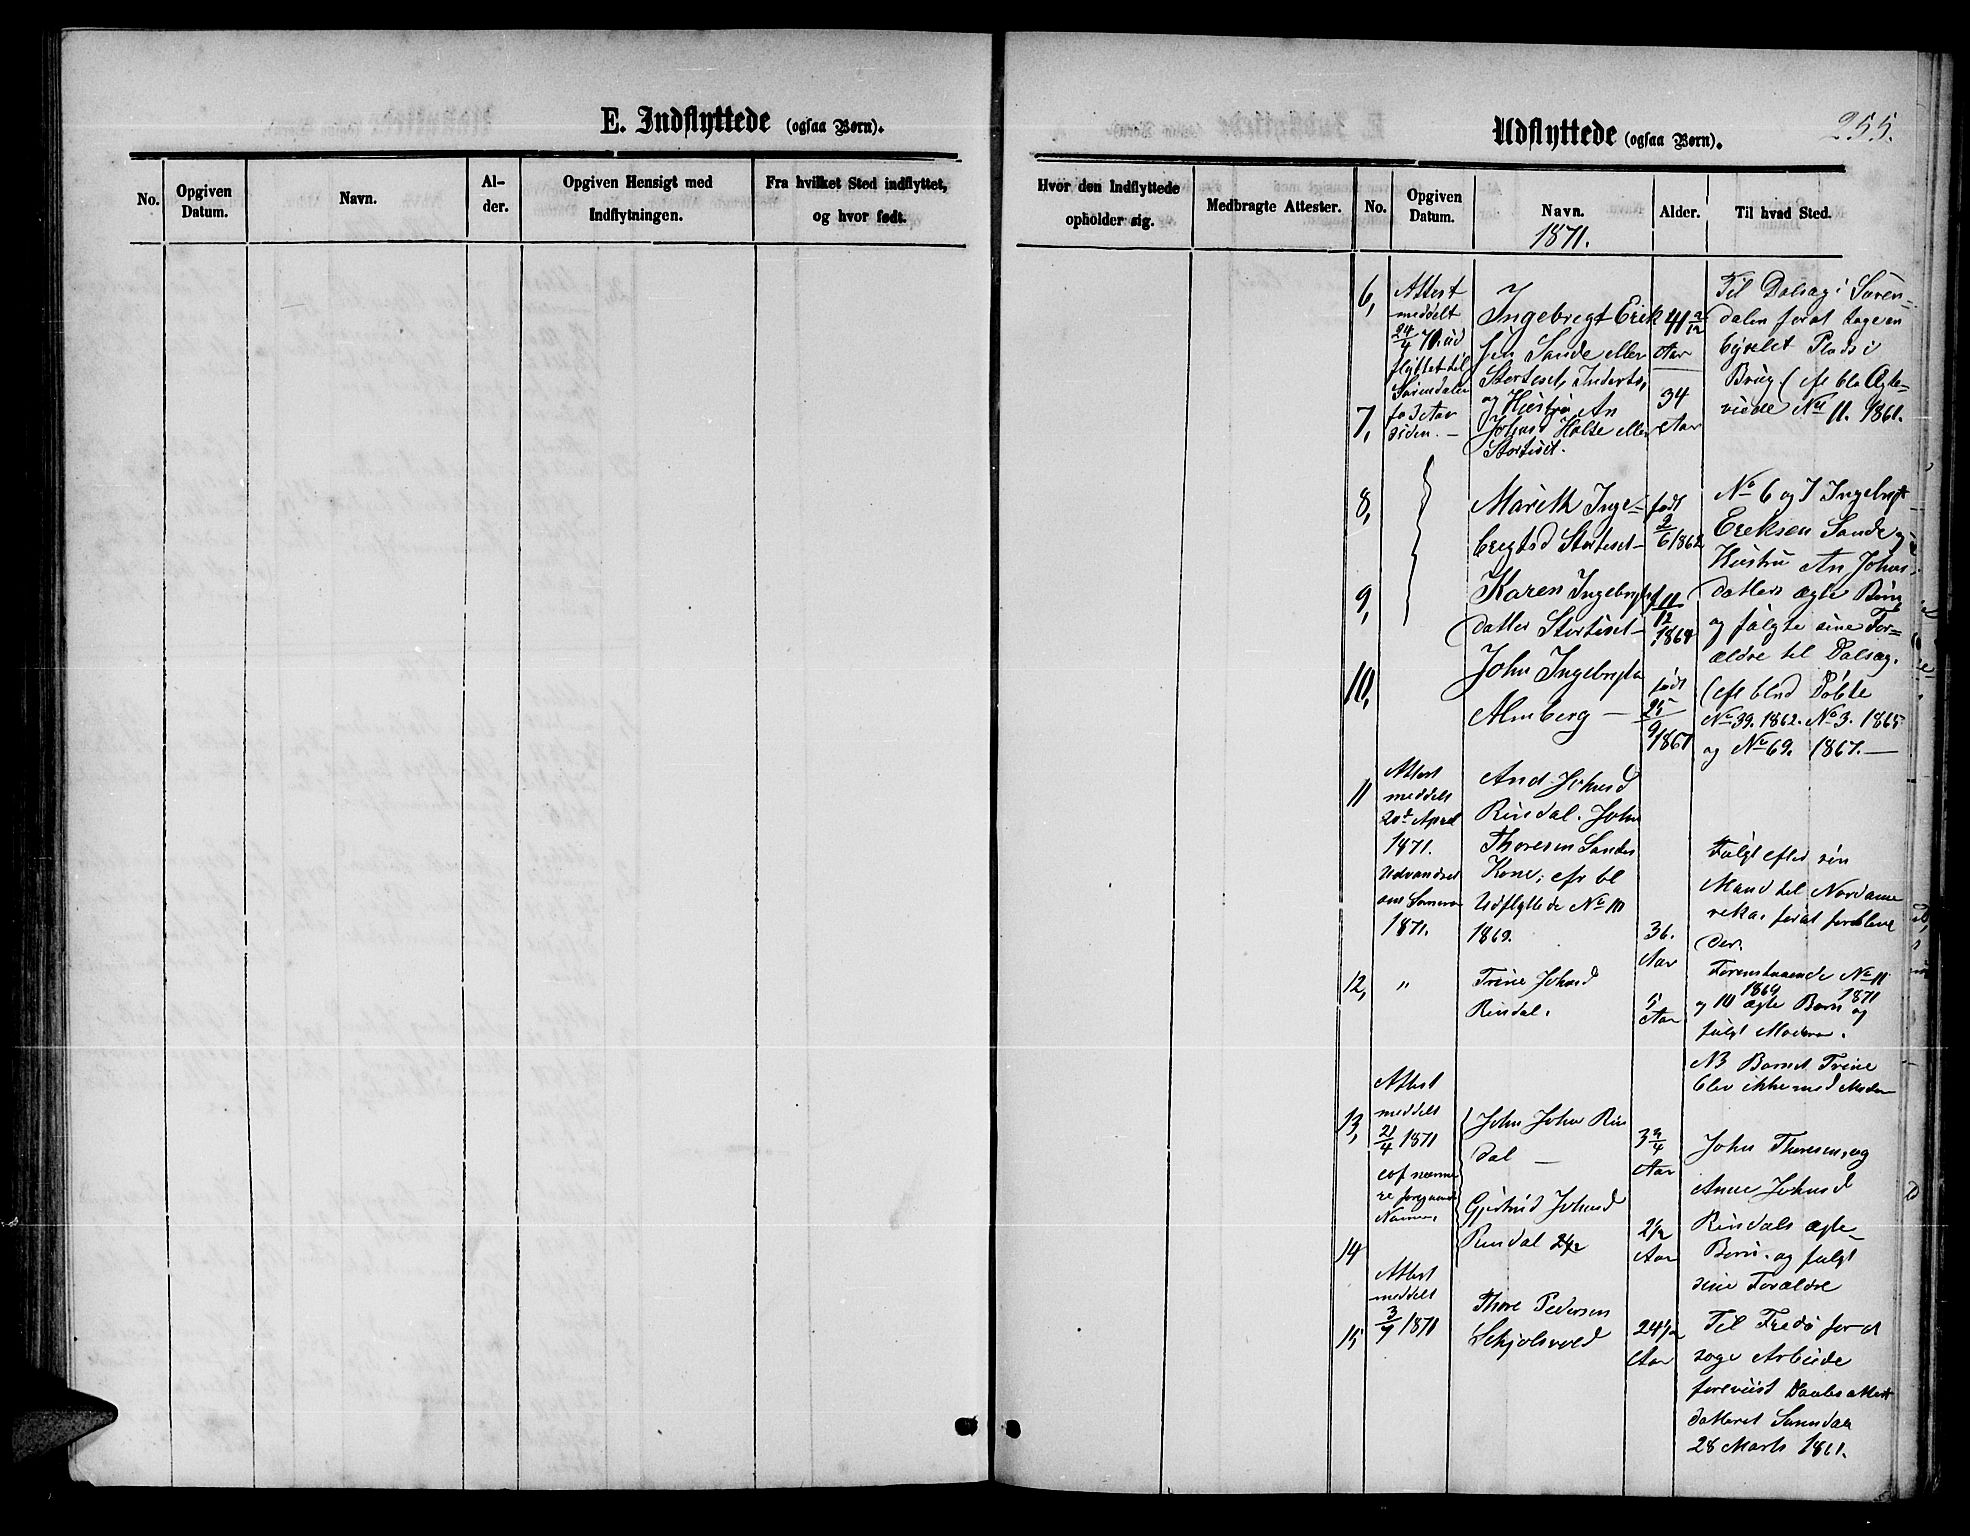 E. Indflyttede (ogsaa Børn).
Udflyttede (ogsaa Børn).
255.
No.
Opgiven Datum.
Navn.
Al-
der.
Opgiven Hensigt med
Indflytningen.
Fra hvilket Sted indflyttet,
og hvor født.
Hvor den Indflyttede
opholder sig.
Medbragte Attester.
No.
Opgiven Datum.
Navn.
Alder.
Til hvad Sted.
1871.
6,
Attest
meddelt
24/4 71. ud
flyttet til
Surendalen
for 3 Aar
siden. —
Ingebregt Erik
sen Sande eller
Storteset, Inderts,
41 2/12
Aar
Til Dalsæg i Suren-
dalen forat tage en
bÿxlet Plads i
Brug (cfr bl. Ægte-
viede No 11. 1861.
7,
og Hustru An
Johnsd Halse eller
Storteset.
34
Aar
8,
Marith Inge-
brigtsd Storteset —
født
2/6 1862
No 6 og 7 Ingebrigt
Eriksen Sande og
Hustru An Johns-
datters ægte Børn
og fulgte sine For-
ældre til Dalsæg.
(cfr blnd Døbte
No 39. 1862. No 3. 1865
og No 69. 1867. —
9,
Karen Ingebrigts
datter Storteset —
f. 11/12
1864
10,
John Ingebrigts
Almberg —
født
25/9 1867
11
Attest
meddelt
20de April
1871.
Udvandret
om Sommeren
1871.
And Johnsd
Rindal. John
Thoresen Sandes
Kone, cfr bl
Udflyttede No 10
1869.
36.
Aar
Fulgt efter sin
Mand til Nordame
rika, forat forblive
der.
12,
"
Trine Johnsd
Rindal.
5
Aar
Forenstaaende No 11
1869 1871
og 10 ægte Barn og
fulgt Moderen.
NB Barnet Trine
blev ikke med Moderen
13,
Attest
meddelt
21/4 1871
cof nærme
re foregaaende
Numer,
John Johns Rin
dal —
3 3/4
Aar
John Thoresen, og
Anne Johnsd
Rindals ægte
Børn, og fulgt
sine Forældre
14
Gjertrud Johnsd
Rindal 2 1/2
2 1/2
Aar
15
Attest
meddelt
3/7 1871
Thore Pedersen
Skjølsvold
24 1/2
Aar
Til Fredø for at
søge Arbeide
foreviist Daabsattest
datteret Surendal
28 Marts 1861.